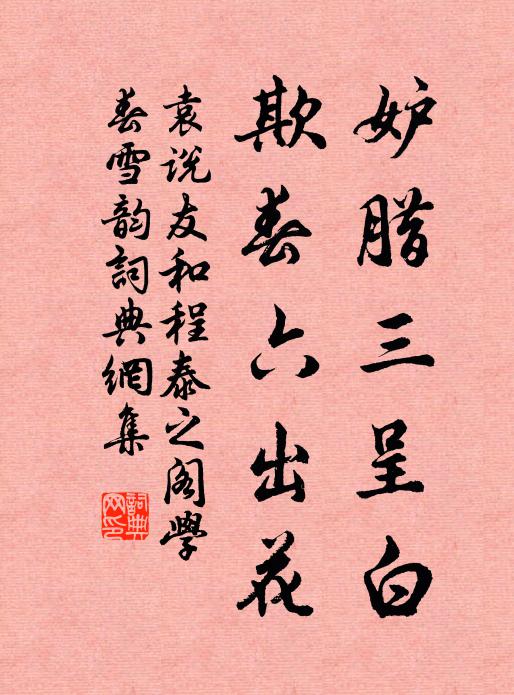 妒腊三呈白
欺春六出花
袁说友和程泰之阁學
春雪韵詞典網集
詞典网印